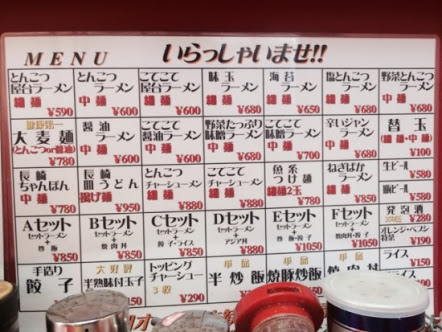 MENU いらっしゃいませ!!
とんこつ屋台ラーメン 細麺 ¥590
とんこつラーメン 中麺 ¥600
こてこて屋台ラーメン 細麺 ¥600
味玉ラーメン 細麺 ¥680
海苔ラーメン 細麺 ¥650
塩とんこつラーメン 細麺 ¥680
野菜とんこつラーメン 中麺 ¥680
大麦麺 (とんこつor醤油) ¥780
醤油ラーメン 中麺 ¥600
こてこて醤油ラーメン 中麺 ¥600
野菜たっぷり味噌ラーメン 中麺 ¥680
こてこて味噌ラーメン 中麺 ¥700
辛いジャンラーメン 中麺 ¥680
替玉 (細麺・中麺) ¥100
長崎ちゃんぽん 中麺 ¥780
長崎皿うどん 揚げ麺 ¥950
とんこつチャーシューメン 細麺 ¥880
こてこてチャーシューメン 細麺 ¥880
魚系つけ麺 細麺2玉 ¥780
ねぎばかラーメン 中麺 ¥780
生ビール ¥580
瓶ビール ¥580
Aセット セットラーメン + 炒飯 ¥850
Bセット セットラーメン + 焼肉丼 ¥850
Cセット セットラーメン + 餃子・ライス ¥850
Dセット セットラーメン + アジア丼 ¥880
Eセット セットラーメン + 炒飯・餃子 ¥1050
Fセット セットラーメン + 焼肉丼・餃子 ¥1050
発泡酒 ¥280
オレンジ・ヘプシ 特茶 ¥190
手造り餃子
大好評 半熟味付玉子
トッピングチャーシュー 3枚 ¥290
単品 半炒飯
焼豚炒飯
単品 焼肉丼
ライス ¥150